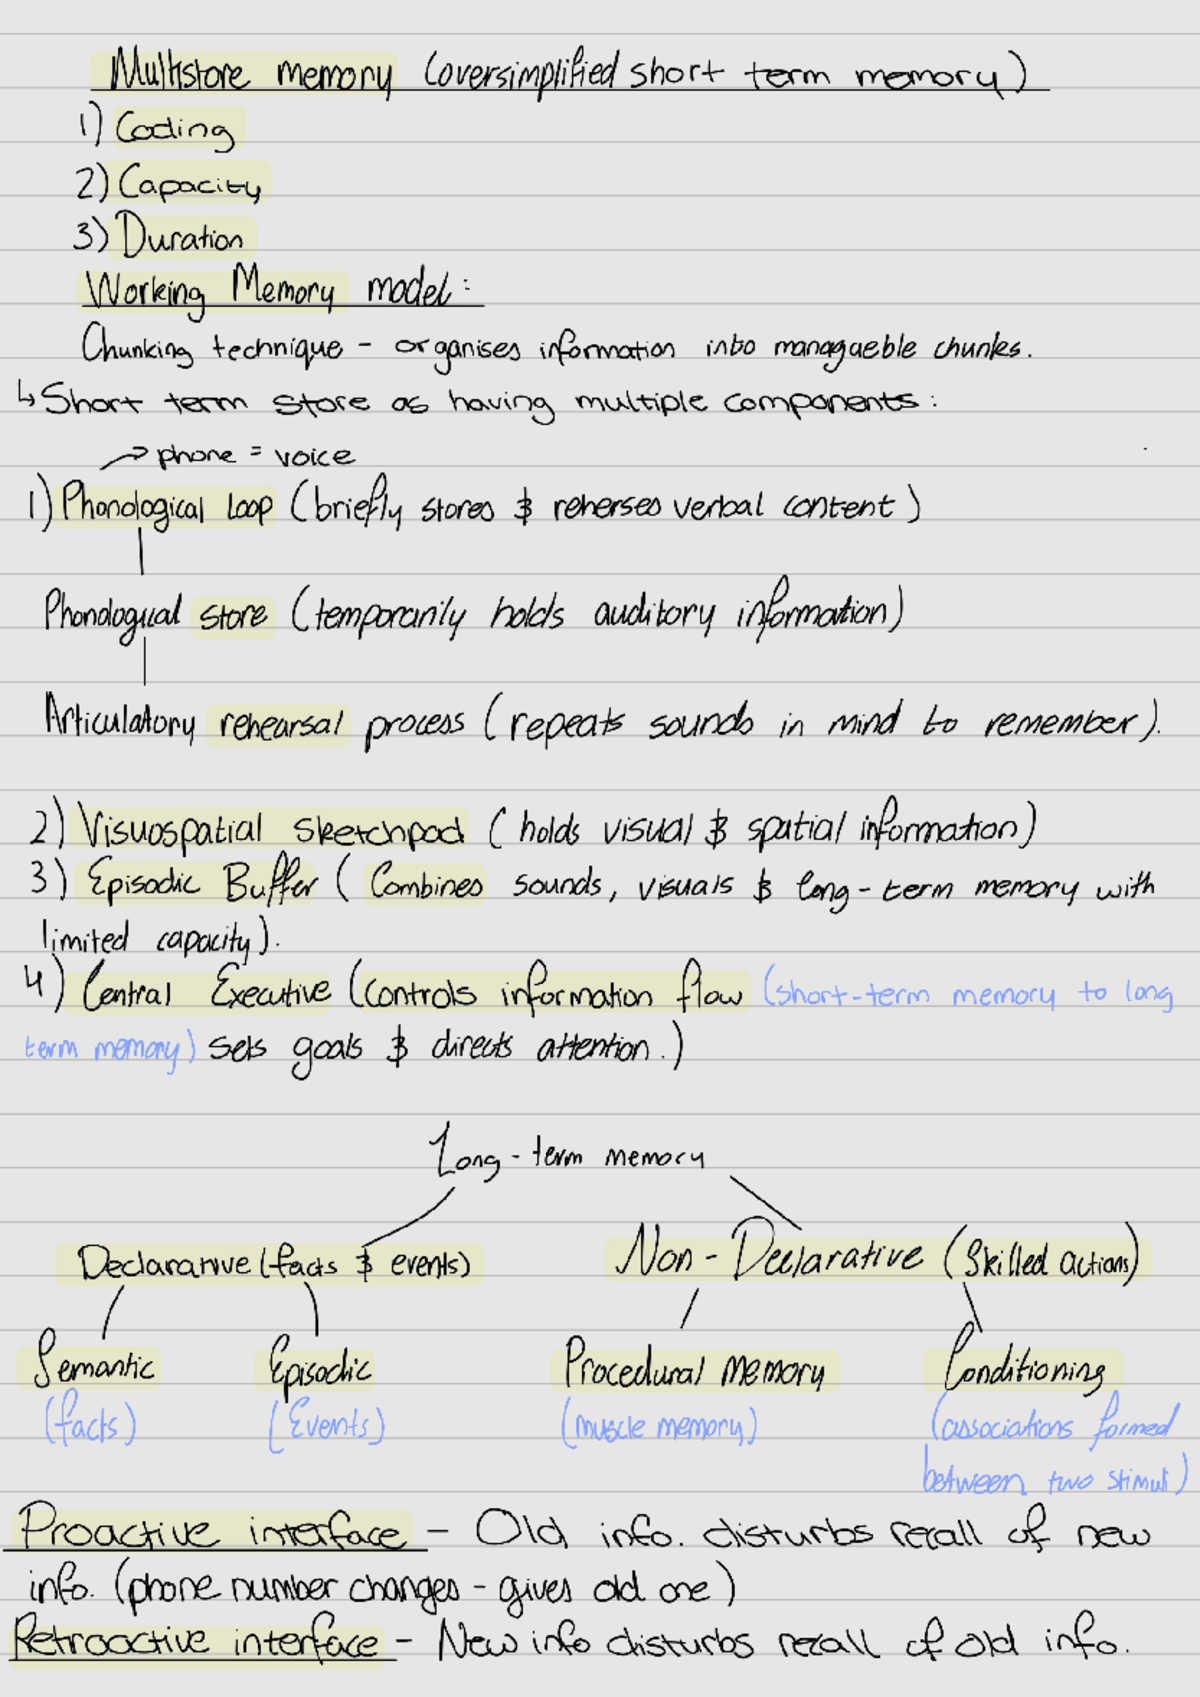 Multistore memory (oversimplified short term memory)
1) Coding
2) Capacity
3) Duration
Working Memory model:
Chunking technique - organises information into managaeble chunks.
↳ Short term store as having multiple components:
→ phone = voice
1) Phonological loop (briefly stores & reherses verbal content)
Phonological store (temporarily holds auditory information)
Articulatory rehearsal process (repeats sounds in mind to remember).
2) Visuospatial sketchpad (holds visual & spatial information)
3) Episodic Buffer (Combines sounds, visuals & long-term memory with
limited capacity).
4) Central Executive (controls information flow (short-term memory to long
term memory) sets goals & directs attention.)
Long-term memory
Declarative (facts & events) Non-Declarative (Skilled actions)
Semantic Episodic Procedural memory Conditioning
(facts) (Events) (muscle memory) (associations formed
between two stimuli)
Proactive interface - Old info. disturbs recall of new
info. (phone number changes - gives old one)
Retroactive interface - New info disturbs recall of old info.